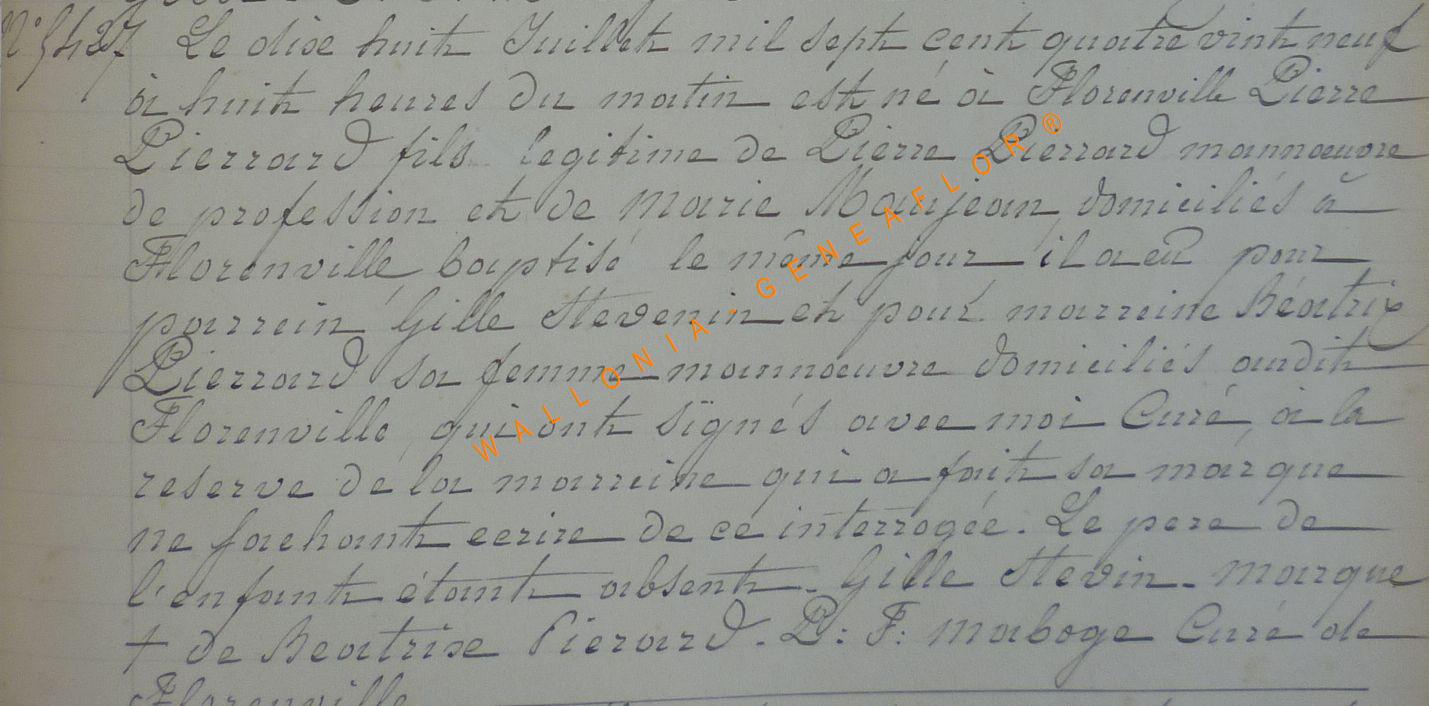 N° 5427 Le dixe huit Juillet mil sept cent quatre vint neuf
à huit heures du matin est né à Florenville Pierre
Pierrard fils legitime de Pierre Pierrard mannœuvre
de profession et de Marie Maujean, domiciliés à
Florenville, baptisé le même jour il a eu pour
parrein Gille Stevenin et pour marreine Béatrix
Pierrard sa femme mannœuvre domiciliés audit
Florenville, qui ont signés avec moi Curé, à la
reserve de la marreine qui a fait sa marque
ne sachant ecrire de ce interrogée. Le pere de
l'enfant étant absent. Gille Stevin. marque
+ de Beatrixe Pierard. P: F: maboge Curé de
Florenville
WALLONIA - GENEAFLOR ®